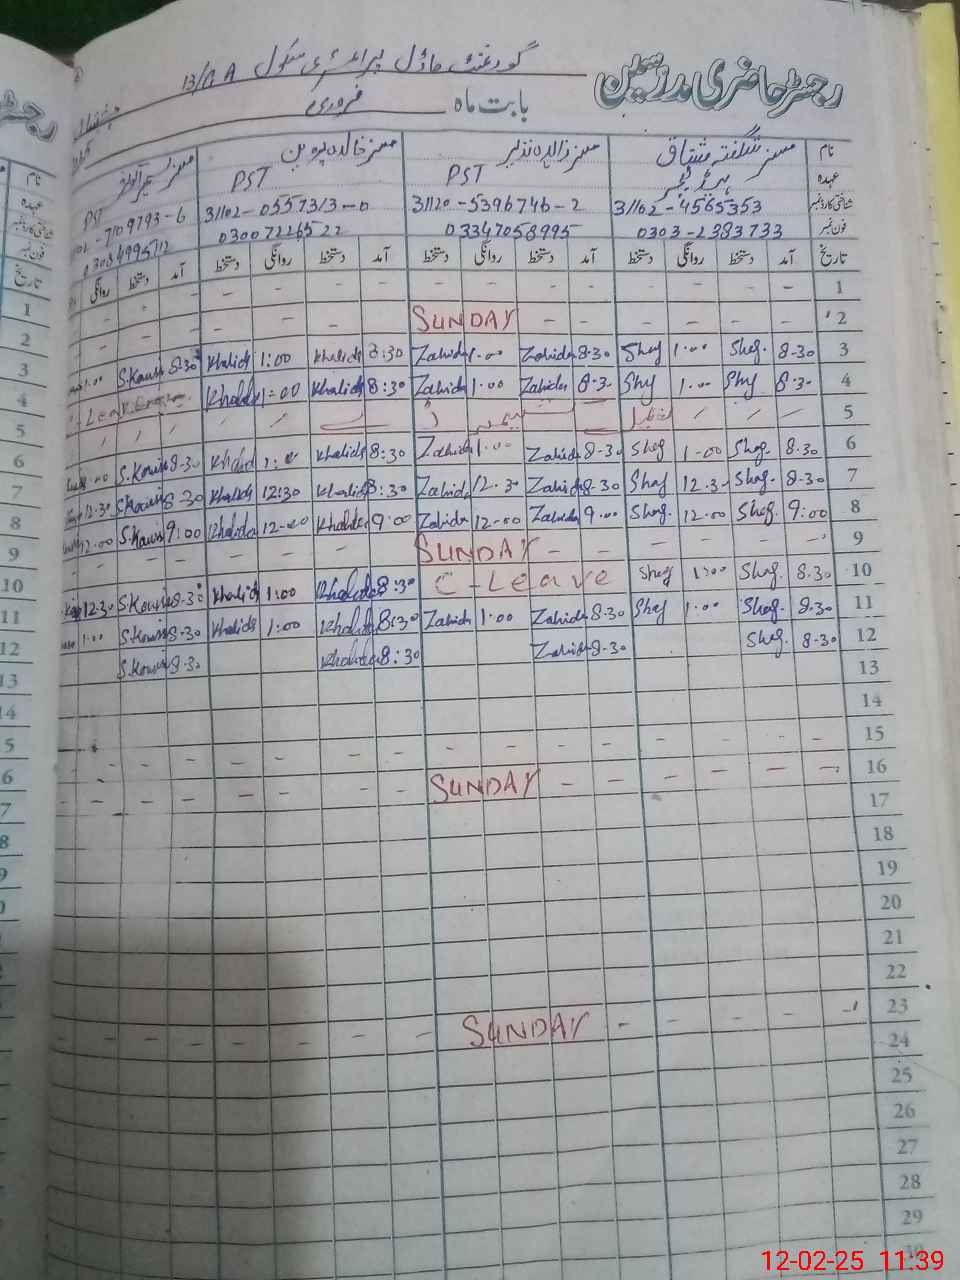 رجسٹر حاضری مدرسین گورنمنٹ ماڈل پرائمری سکول 13/
بابت ماہ فروری
نام مسز شگفتہ مشتاق مسز زاہدہ نذیر مسز خالدہ پروین مسز
عہدہ ہیڈ ٹیچر PST PST PST
شناختی کارڈ نمبر 31102-4565353 31120-5396746-2 31102-0557313-0
فون نمبر 0303-2383733 03347058995 03007226522
تاریخ آمد دستخط روانگی دستخط آمد دستخط روانگی دستخط آمد دستخط روانگی دستخط آمد دستخط روانگی
1 - - - - - - - - - -
2 - - - - SUNDAY - - - - -
3 8-30 Shag. 1.00 Shag 8-30 Zahida 1.00 Zahida 8:30 Khalida 1:00 Khalida 8-30 S.Kousar 1.00
4 8-30 Shag 1.00 Shag 8-3 Zahida 1.00 Zahida 8:30 Khalida 1=00 Khalida Leave
5 تعطیل کشمیر ڈے
6 8.30 Shag. 1-00 Shag 8-30 Zahida 1.00 Zahida 8:30 Khalida 1:00 Khalida 8-30 S.Kousar
7 8-30 Shag. 12.30 Shag 8-30 Zahida 12.30 Zahida 8:30 Khalida 12:30 Khalida 8 30 S.Kousar 12.30
8 9:00 Shag. 12.00 Shag. 9.00 Zahida 12-00 Zahida 9:00 Khalida 12-00 Khalida 9:00 S.Kousar 12.00
9 - - - - SUNDAY - - - - -
10 8.30 Shag. 1:00 Shag C-Leave 8:30 Khalida 1:00 Khalida 8-30 S.Kousar 12.30
11 8.30 Shag. 1.00 Shag 8-30 Zahida 1.00 Zahida 8:30 Khalida 1:00 Khalida 8-30 S.Kousar 1.00
12 8-30 Shag. 8-30 Zahida 8:30 Khalida 8-30 S.Kousar
13
14
15
16 - - - - SUNDAY - - - - -
17
18
19
20
21
22
23 - - - - SUNDAY - - - - -
24
25
26
27
28
29
30
12-02-25 11:39